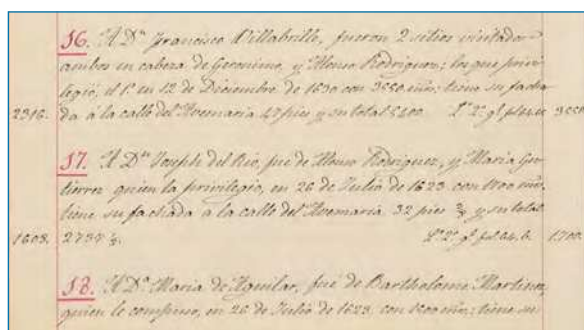 16. A Dn Francisco Villabrille, fueron 2 sitios visitados
ambos en cabeza de Geronimo, y Alonso Rodriguez; los que privi-
legió, el 1º en 12 de Diciembre de 1630 con 3550 mrs; tiene su facha-
2316. da à la calle del Avemaria 47 pies y su total 5400. 3550
17. A Dn Joseph del Rio, fue de Alonso Rodriguez, y Maria Gu-
tierrez quien la privilegió, en 26 de Julio de 1623 con 1700 mrs
tiene su fachada à la calle del Avemaria 32 pies 3/4 y su total
1608. 2737 1/2. 1700.
18. A Da Maria de Aguilar, fué de Bartholome Martinez,
quien le compuso, en 26 de Julio de 1623, con 1500 mrs; tiene su